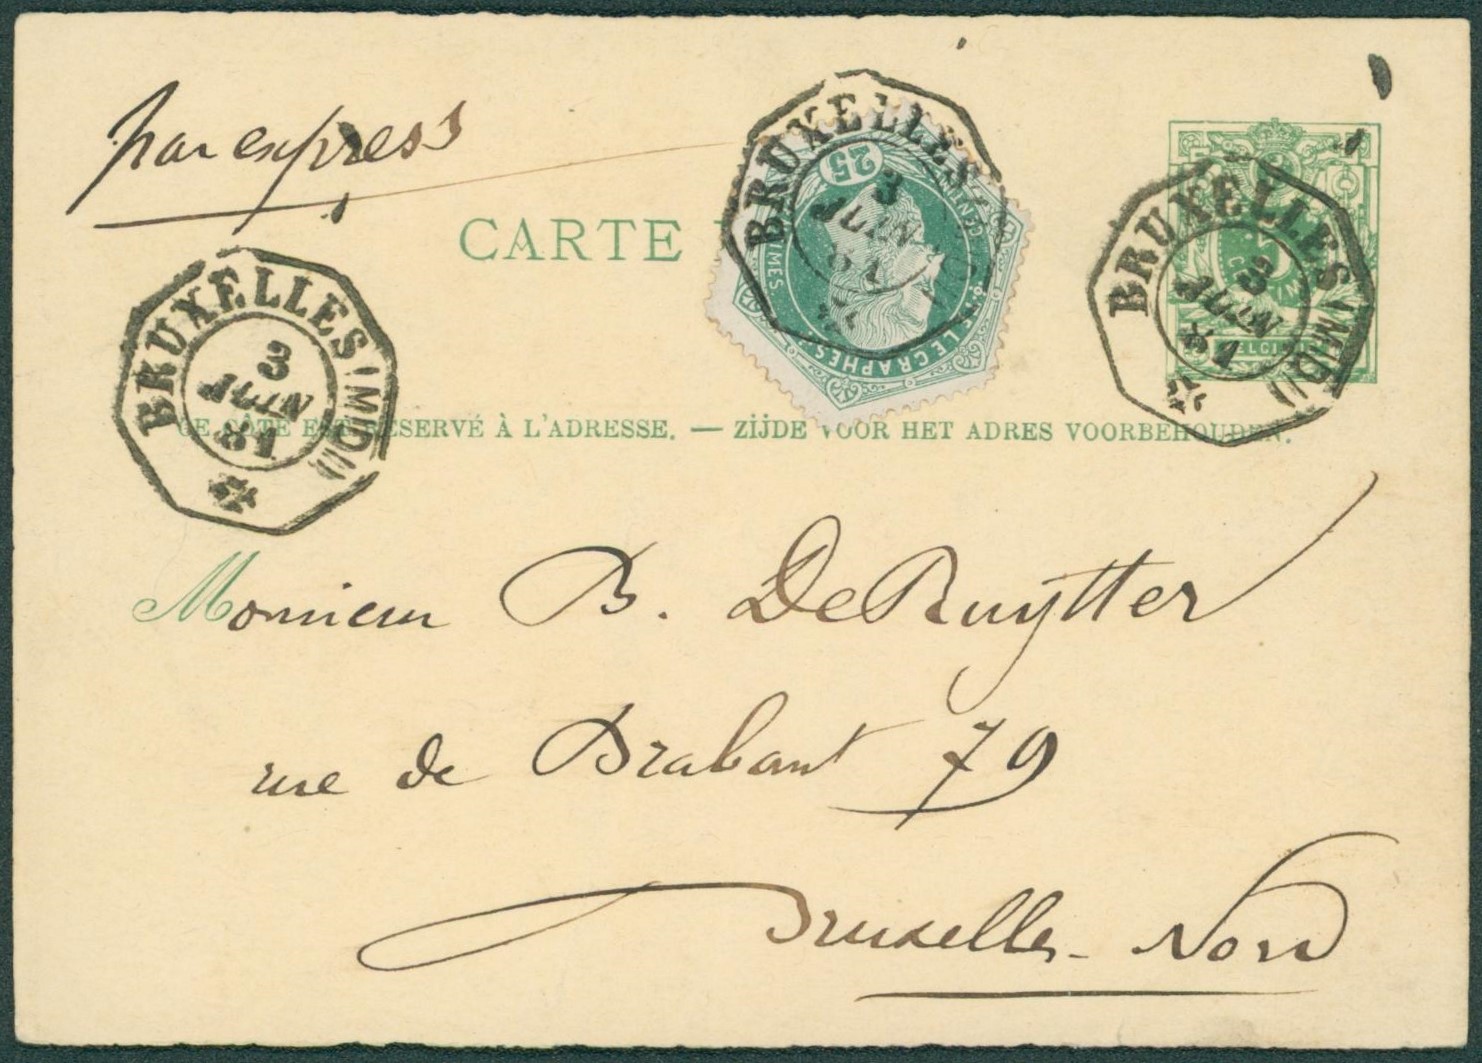 par express
CARTE
BRUXELLES (MIDI)
3
JUIN
81
BRUXELLES
25
3
JUIN
81
CENTIMES
TÉLÉGRAPHES
BRUXELLES (MIDI)
3
JUIN
81
CE CÔTÉ EST RÉSERVÉ À L'ADRESSE. — ZIJDE VOOR HET ADRES VOORBEHOUDEN.
Monsieur B. DeRuytter
rue de Brabant 79
Bruxelles-Nord